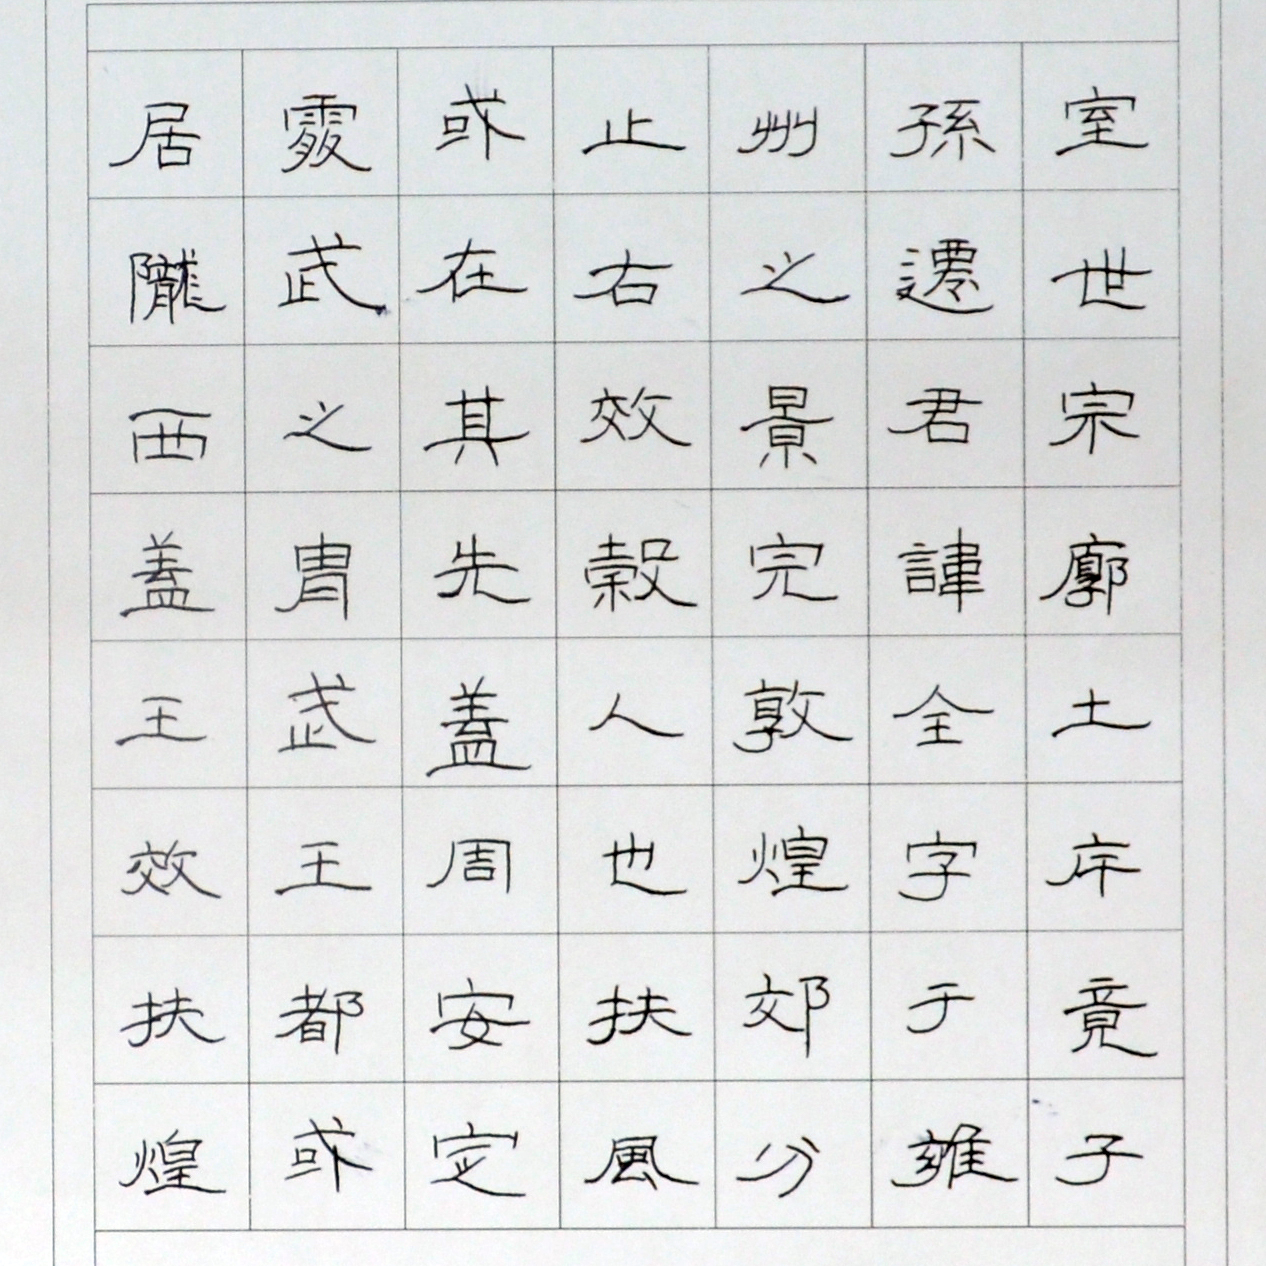 室世宗廓土斥竟子
孫遷君諱全字于雍
州之景完敦煌郊分
止右效穀人也扶風
或在其先蓋周安定
霧武之胄武王都或
居隴西蓋王效扶煌